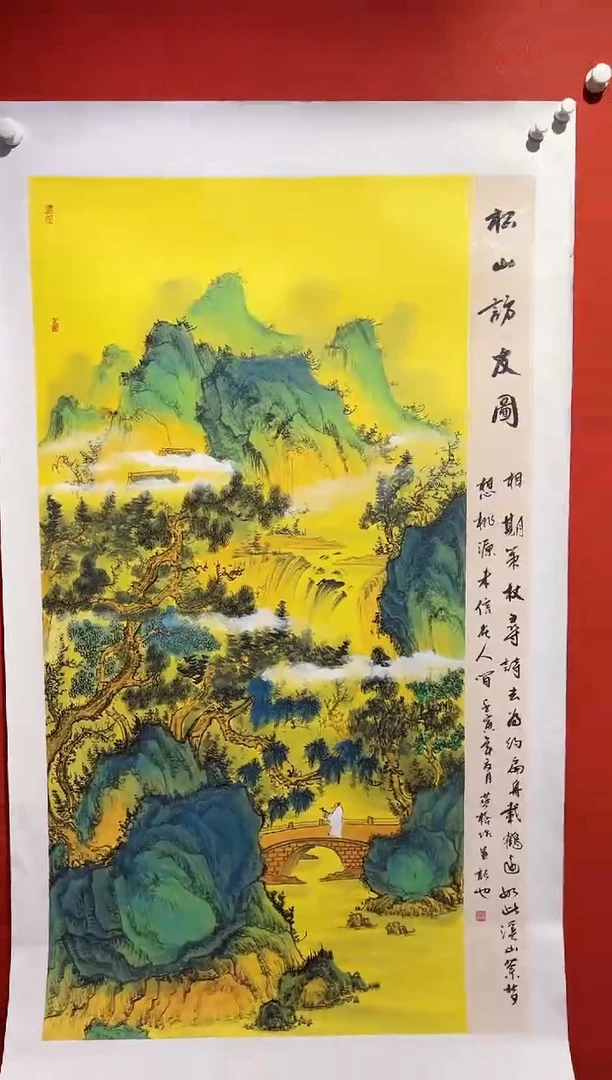 松山訪友圖
相期策杖尋詩去為約扁舟載鶴過如此溪山縈夢
想桃源未信在人間壬寅年